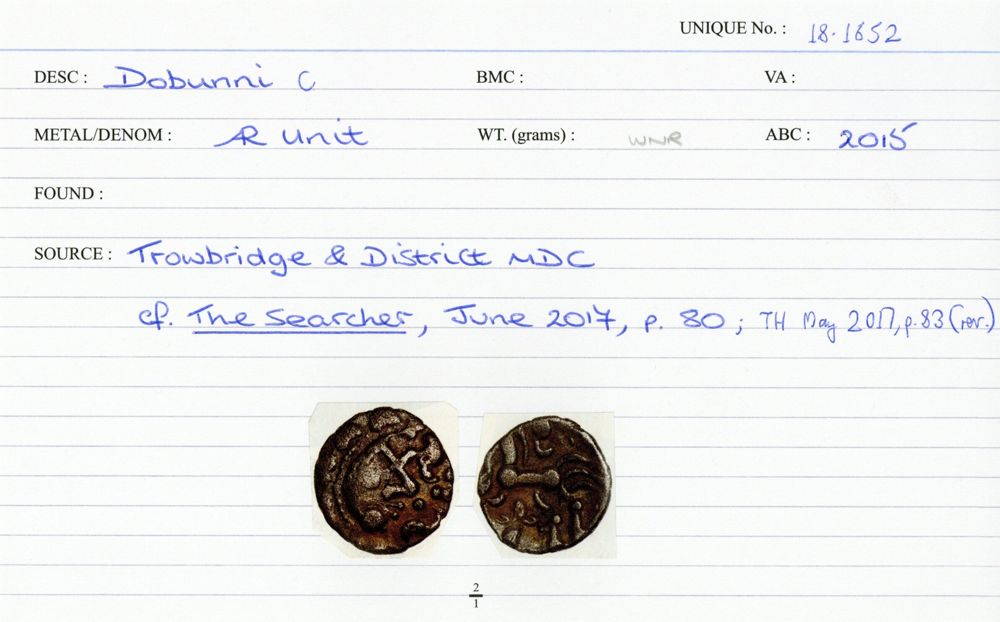 UNIQUE No. : 18.1652
DESC : Dobunni C BMC : VA :
METAL/DENOM : AR Unit WT. (grams) : WNR ABC : 2015
FOUND :
SOURCE : Trowbridge & District MDC
cf. The Searcher, June 2017, p. 80 ; TH May 2017, p.83 (rev.)
2
1